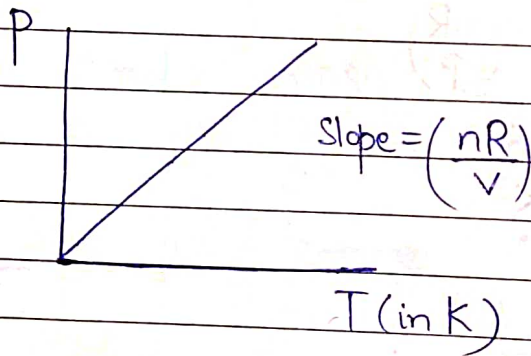 P
Slope = (nR/V)
T (in K)